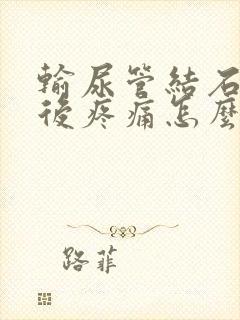 輸尿管結石
後疼痛怎麼
路菲